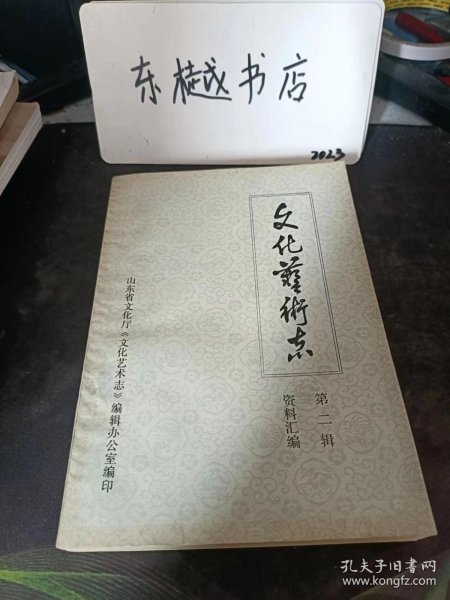 东樾书店
2023
文化藝術志
第二辑
资料汇编
山东省文化厅《文化艺术志》编辑办公室编印
孔夫子旧书网
www.kongfz.com